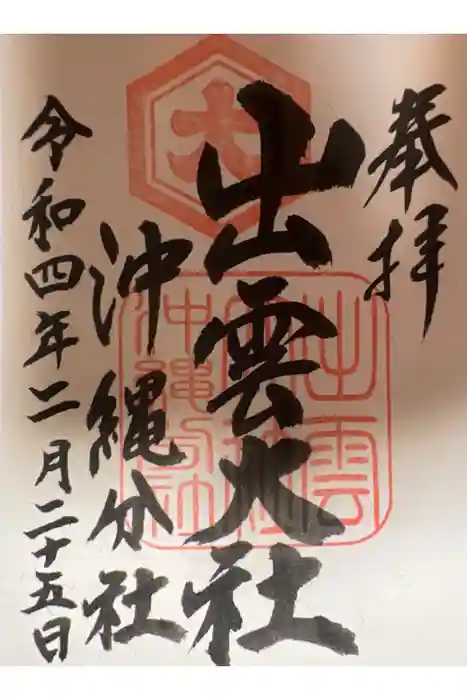 奉拝
出雲大社
沖縄分社
令和四年二月二十五日
大
出雲
大社
沖縄分社